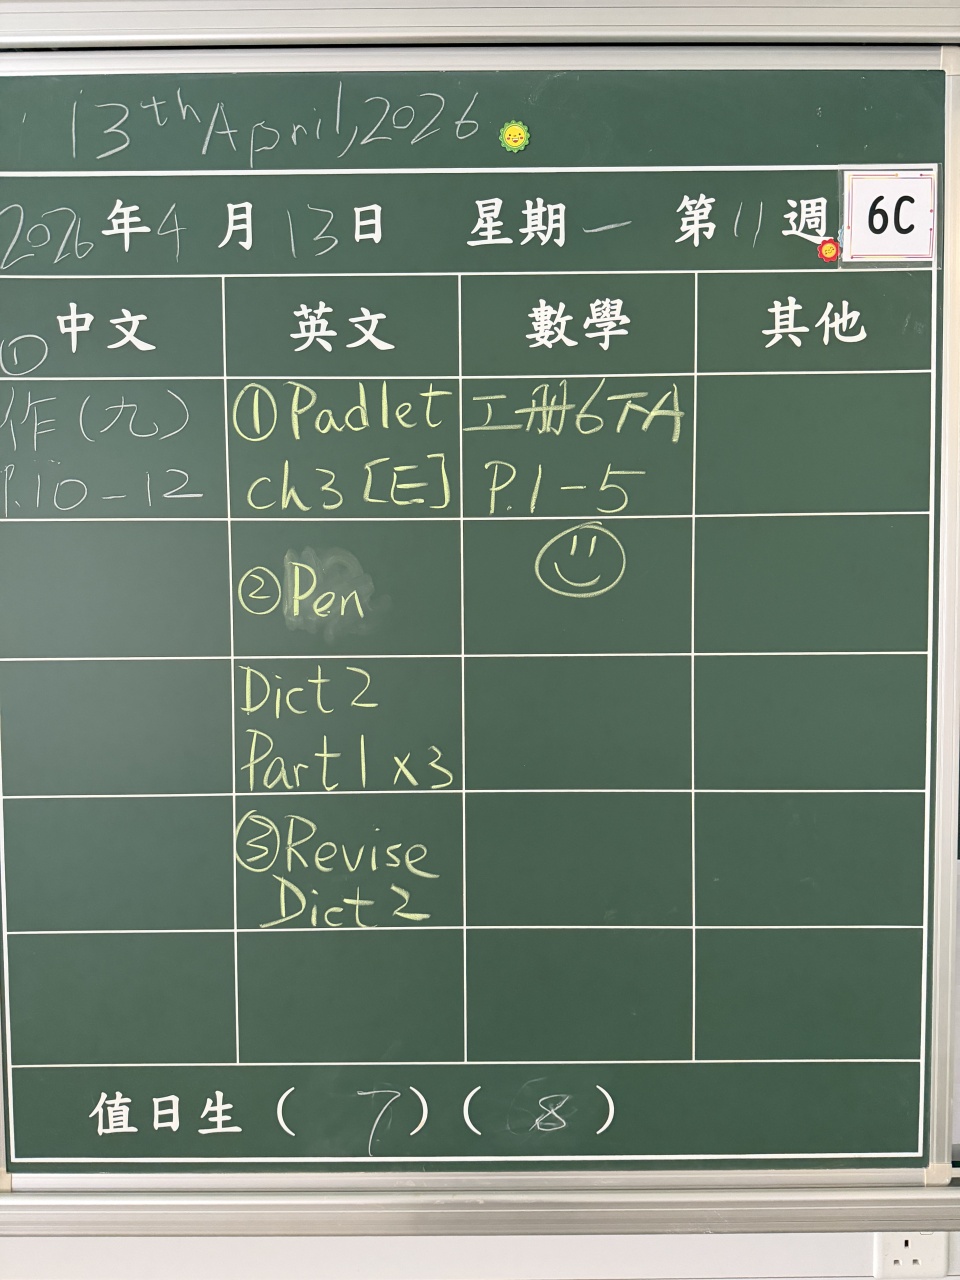 13th April, 2026
2026年4月13日 星期一 第11週
6C
中文 英文 數學 其他
①
作(九)
P.10-12
①Padlet
ch3 [E]
②Pen
Dict 2
Part 1 x3
③Revise
Dict 2
工册6下A
P.1-5
值日生( 7 )( 8 )